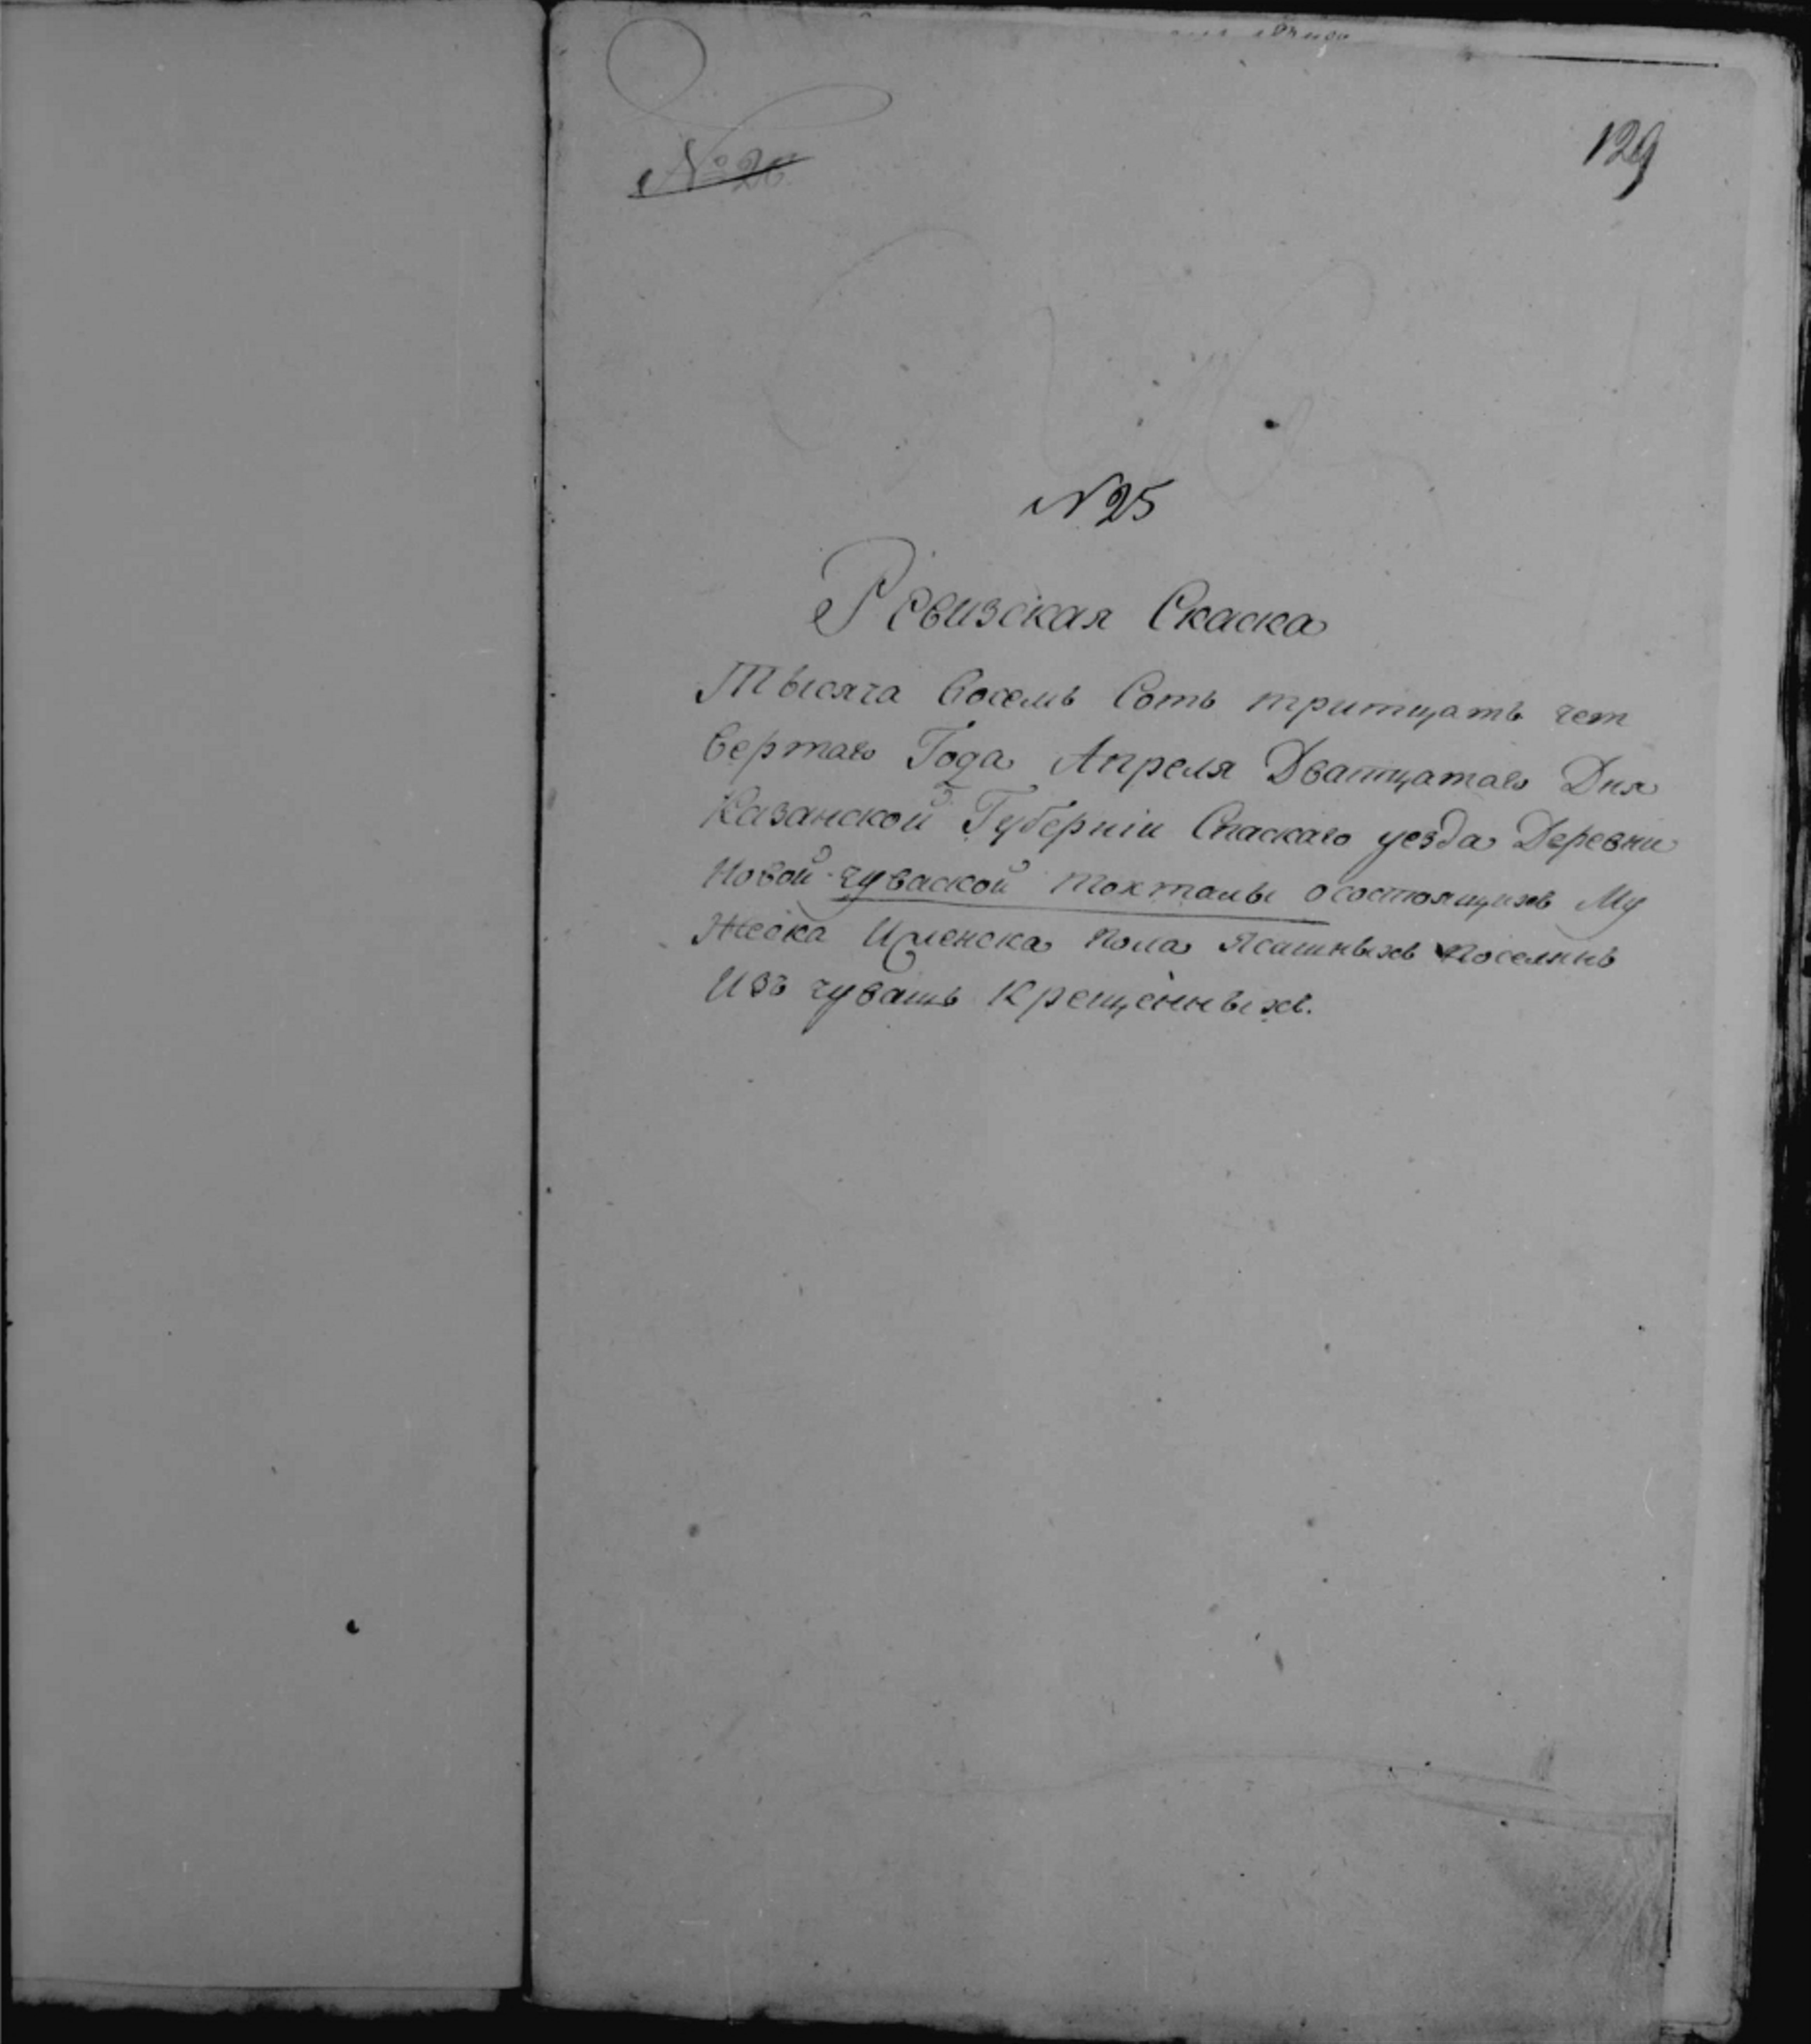 129
№ 26
N 25
Ревизская Скаска
Тысяча Восемь Сотъ тритцать чет
вертаго Года Апреля Дватцатаго Дня
Казанской Губерніи Спаскаго уезда Деревни
Новой чуваской Токталы о состоящихъ Му
жеска И женска пола Ясашныхъ поселянъ
Изъ чувашъ крещенныхъ.